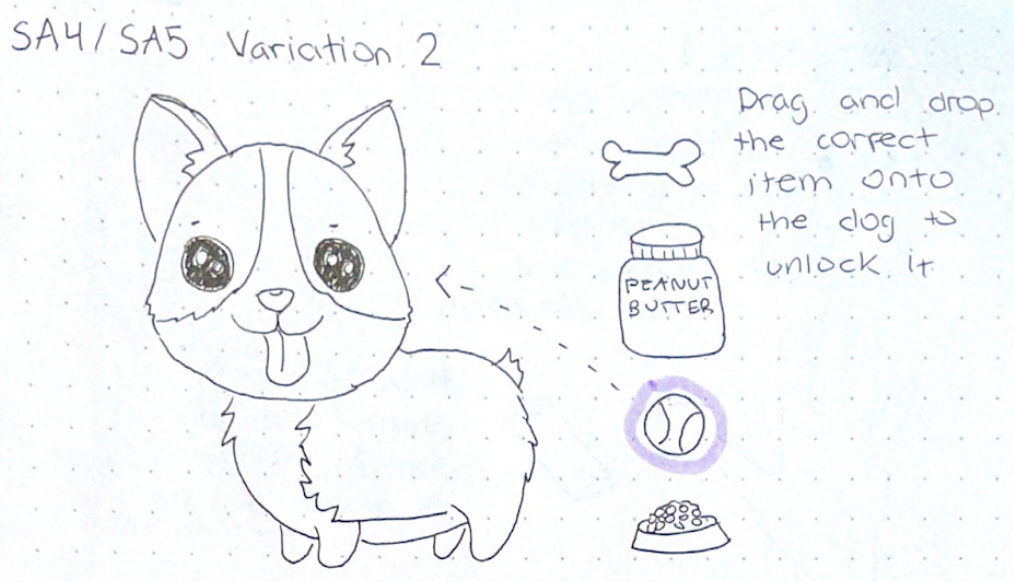 SA4/SA5 Variation 2
Drag and drop
the correct
item onto
the dog to
unlock it
PEANUT
BUTTER